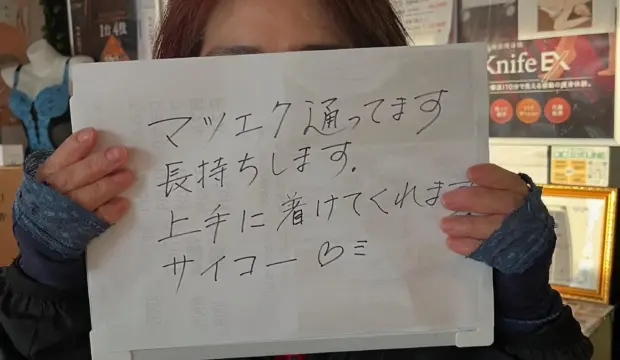 マツエク通ってます
長持ちします.
上手に着けてくれます
サイコー♡ミ
1台4枚
Knife EX